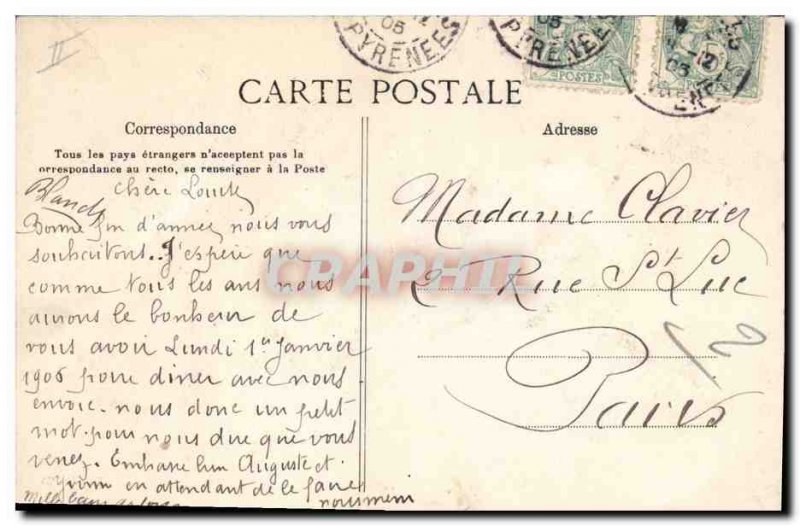 II
05
PYRENEES
05
PYRENEES
POSTES
12
05
CARTE POSTALE
Correspondance
Adresse
Tous les pays étrangers n'acceptent pas la
orrespondance au recto, se renseigner à la Poste
chère
Bonne fin d'année nous vous
souhaitons.. J'espère que
comme tous les ans nous
aurons le bonheur de
vous avoir Lundi 1er Janvier
1906 pour diner avec nous
envoie. nous donc un petit
mot pour nous dire que vous
venez. Auguste et
en attendant de le faire
Madame Clavier
2 Rue St Luc
Paris
CPRAPHIL